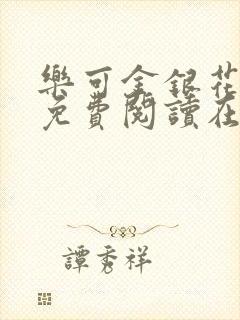 樂可金銀花
免費閱讀在
譚秀祥